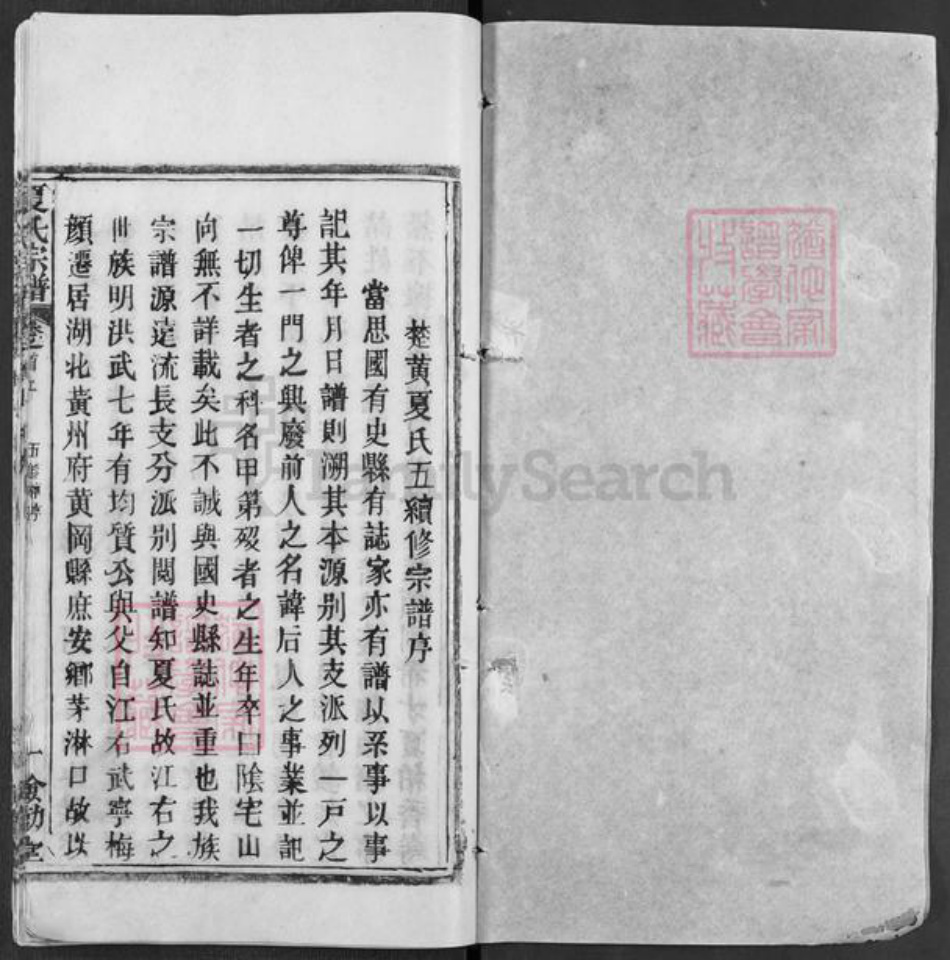 楚黄夏氏五續修宗譜序
當思國有史縣有誌家亦有譜以系事以事
記其年月日譜則溯其本源别其支派列一戸之
尊俾一門之興廢前人之名諱后人之事業並記
一切生者之科名甲第歿者之生年卒日陰宅山
向無不詳載矣此不誠與國史縣誌並重也我族
宗譜源逺流長支分派别閲譜知夏氏故江右之
世族明洪武七年有均質公與父自江右武寧梅
顔遷居湖北黄州府黄岡縣庶安鄉茅淋口故以
夏氏宗譜
卷首上
一
會勅堂
猶他家譜學會收藏
FamilySearch